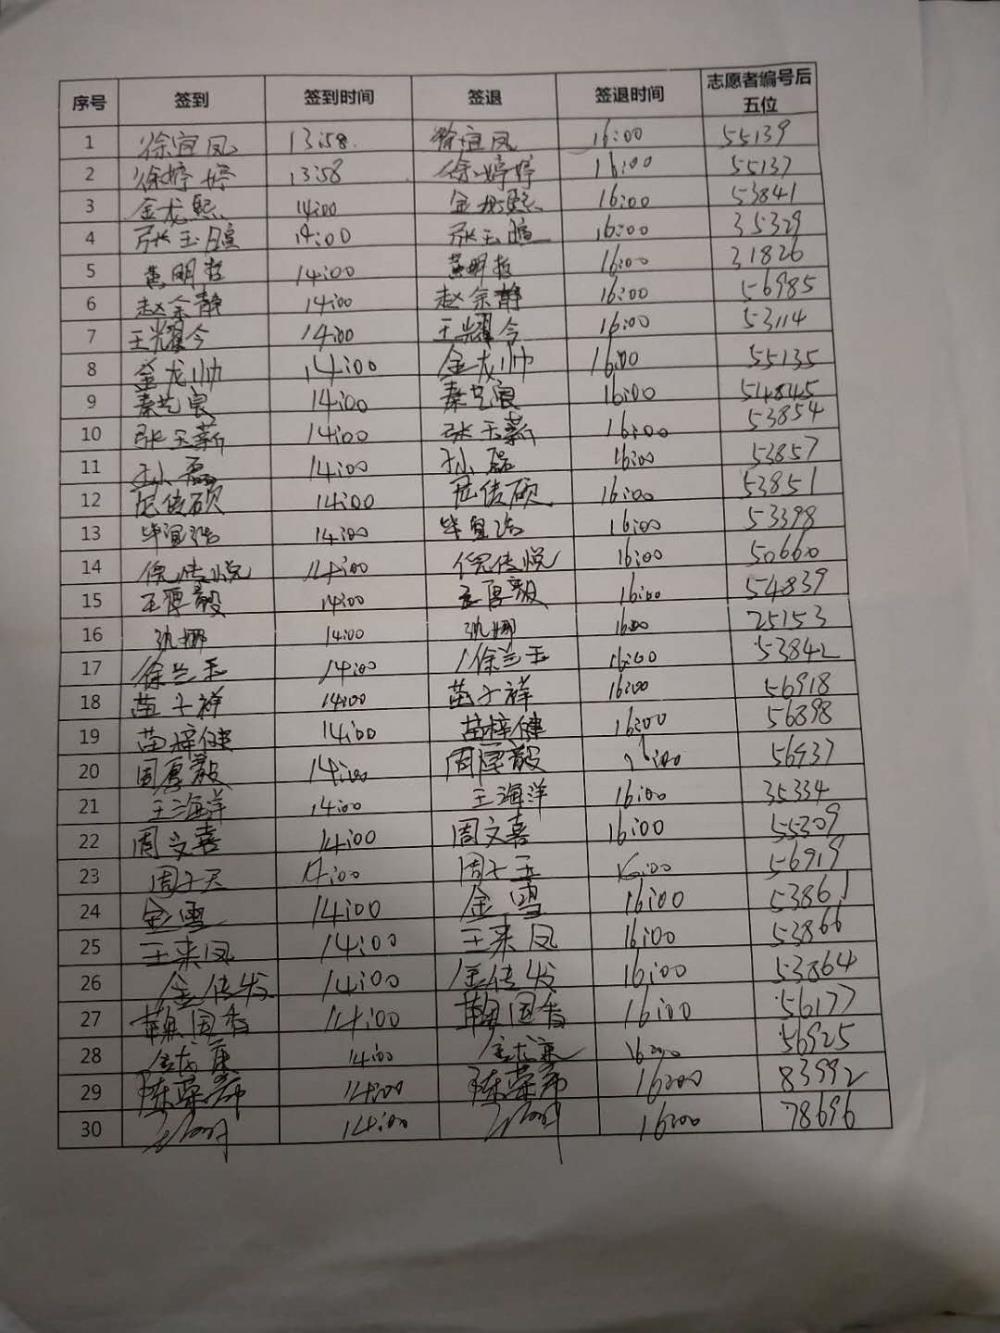 序号 签到 签到时间 签退 签退时间 志愿者编号后五位
1 徐宜凤 13:58 徐宜凤 16:00 55139
2 徐婷婷 13:58 徐婷婷 16:00 55137
3 金龙熙 14:00 金龙熙 16:00 53841
4 张玉暄 14:00 张玉暄 16:00 35329
5 黄明哲 14:00 黄明哲 16:00 31826
6 赵余静 14:00 赵余静 16:00 56985
7 王耀今 14:00 王耀今 16:00 53114
8 金龙帅 14:00 金龙帅 16:00 55135
9 秦艺良 14:00 秦艺良 16:00 54845
10 张玉薪 14:00 张玉薪 16:00 53854
11 孙磊 14:00 孙磊 16:00 53857
12 传硕 14:00 传硕 16:00 53851
13 毕宜浩 14:00 毕宜浩 16:00 53398
14 倪传悦 14:00 倪传悦 16:00 50660
15 王厚毅 14:00 王厚毅 16:00 54839
16 娜 14:00 娜 16:00 25153
17 徐兰玉 14:00 徐兰玉 16:00 53842
18 苗子祥 14:00 苗子祥 16:00 56918
19 苗梓健 14:00 苗梓健 16:00 56898
20 周厚毅 14:00 周厚毅 16:00 56937
21 王海洋 14:00 王海洋 16:00 35334
22 周文喜 14:00 周文喜 16:00 55309
23 周子 14:00 周子玉 16:00 56919
24 金雪 14:00 金雪 16:00 53861
25 王来凤 14:00 王来凤 16:00 53866
26 金传发 14:00 金传发 16:00 53864
27 国香 14:00 国香 16:00 56177
28 金龙康 14:00 金龙康 16:00 56925
29 陈荣希 14:00 陈荣希 16:00 83992
30 14:00 16:00 78696